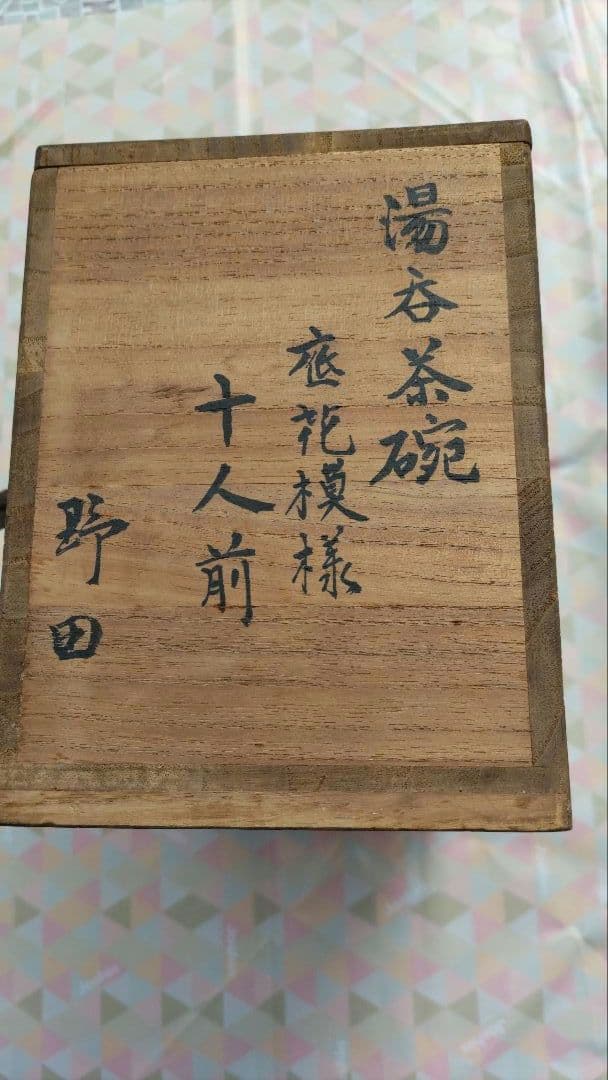 湯呑茶碗
底花模様
十人前
野田